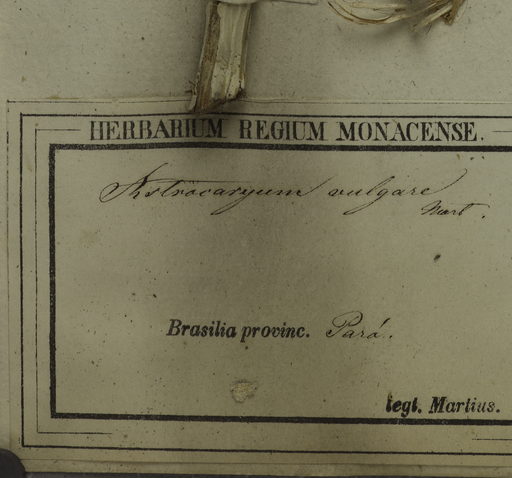 HERBARIUM REGIUM MONACENSE.
Astrocaryum vulgare
Mart.
Brasilia provinc. Pará.
legt. Martius.